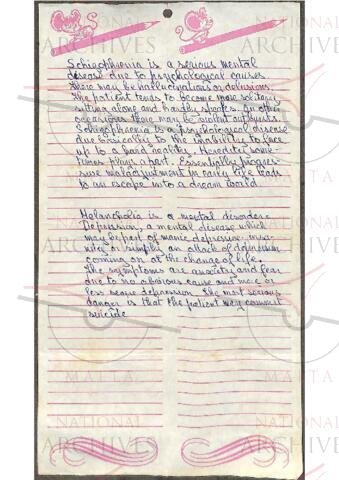 Schizophrenia is a serious mental
disease due to psychological causes
There may be hallucinations or delusions.
The patient tends to become more solitary,
sitting alone and hardly speaks. On other
occasions there may be violent outbursts.
Schizophrenia is a psychological disease
due basically to the inability to face
up to a hard reality. Heredity some
times plays a part. Essentially progres-
sive maladjustment in early life leads
to an escape into a dream world.
Melancholia is a mental disorder =
Depression, a mental disease which
may be part of manic depressive insa-
nity or simply an attack of depression
coming on at the change of life.
The symptoms are anxiety and fear
due to no obvious cause and more or
less severe depression. The most serious
danger is that the patient may commit
suicide
NATIONAL
ARCHIVES
MALTA
NATIONAL
ARCHIVES
MALTA
NATIONAL
ARCHIVES